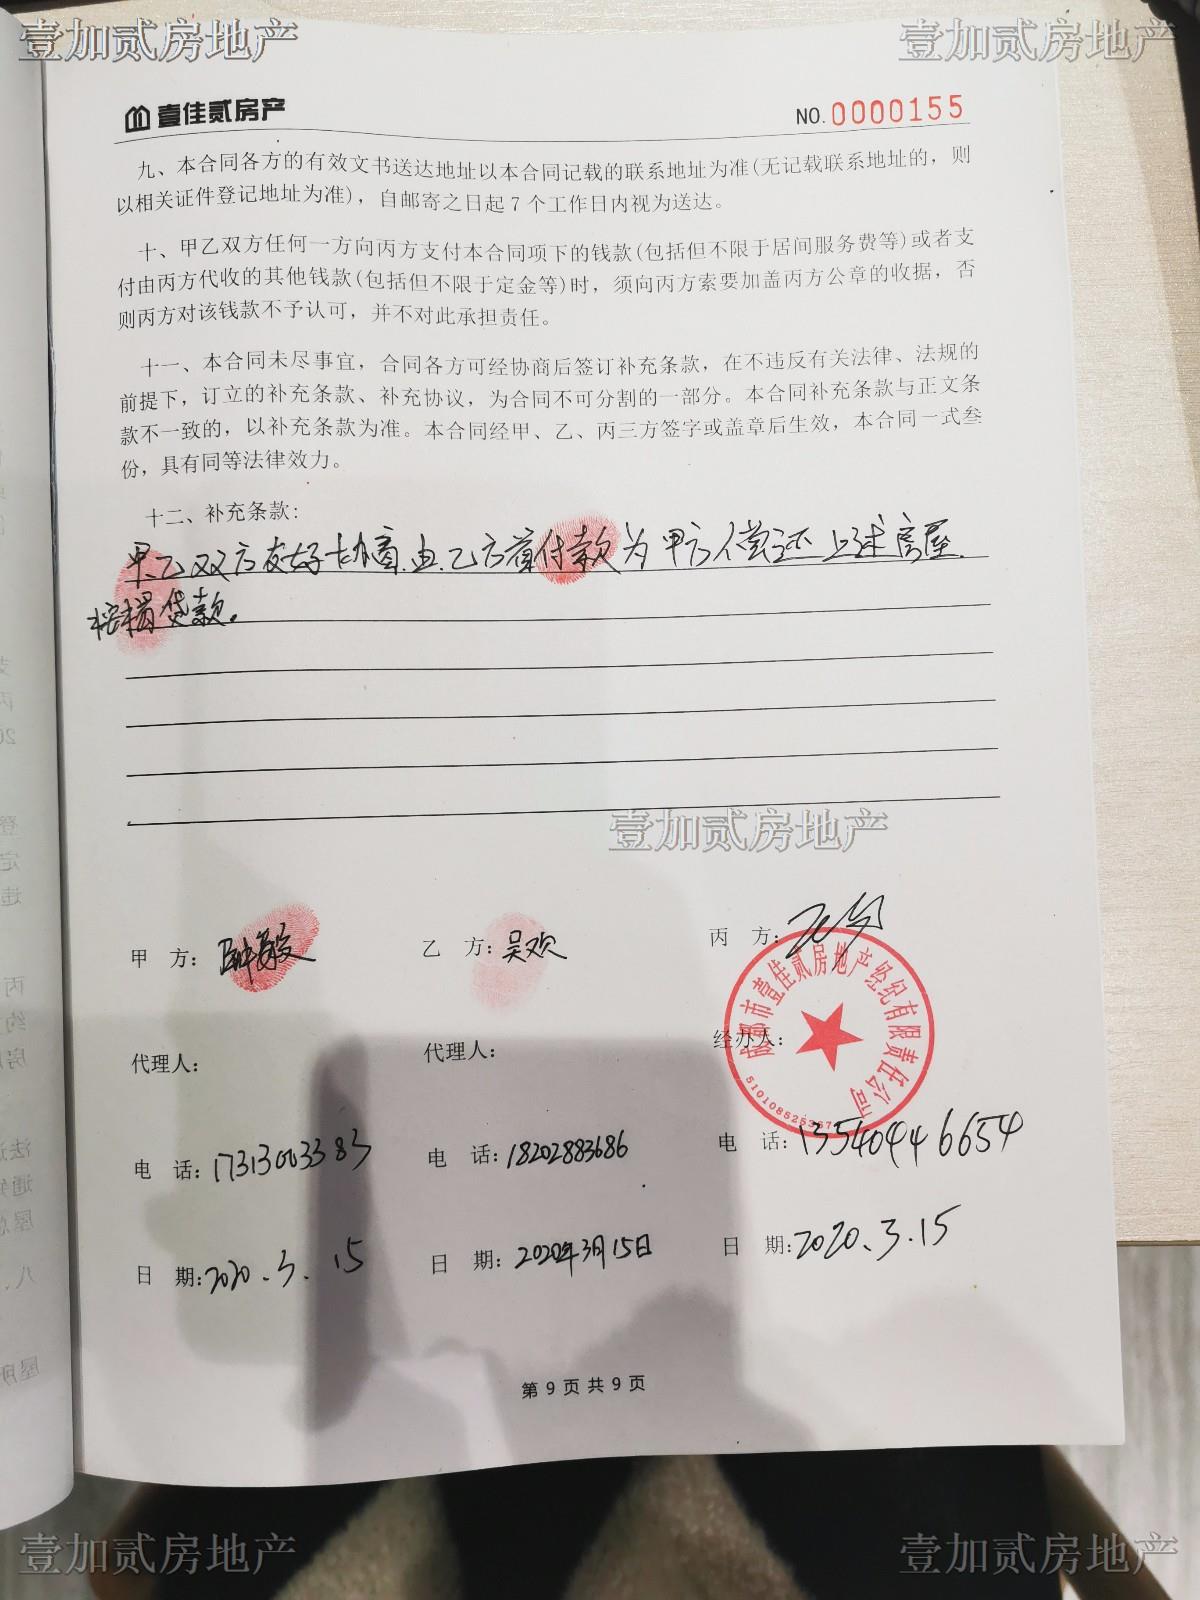 壹加贰房地产
壹加贰房地产
壹佳贰房产
NO.0000155
九、本合同各方的有效文书送达地址以本合同记载的联系地址为准(无记载联系地址的，则
以相关证件登记地址为准)，自邮寄之日起7个工作日内视为送达。
十、甲乙双方任何一方向丙方支付本合同项下的钱款(包括但不限于居间服务费等)或者支
付由丙方代收的其他钱款(包括但不限于定金等)时，须向丙方索要加盖丙方公章的收据，否
则丙方对该钱款不予认可，并不对此承担责任。
十一、本合同未尽事宜，合同各方可经协商后签订补充条款，在不违反有关法律、法规的
前提下，订立的补充条款、补充协议，为合同不可分割的一部分。本合同补充条款与正文条
款不一致的，以补充条款为准。本合同经甲、乙、丙三方签字或盖章后生效，本合同一式叁
份，具有同等法律效力。
十二、补充条款：
甲、乙双方友好协商.由.乙方首付款为甲方偿还上述房屋.
按揭贷款。
壹加贰房地产
甲 方：
乙 方：吴欢
丙 方：
成都市壹佳贰房地产经纪有限责任公司
代理人：
代理人：
经办人：
电 话：17313003383
电 话：18202883686
电 话：13540446654
日 期：2020.3.15
日 期：2020年3月15日
日 期：2020.3.15
第 9 页 共 9 页
壹加贰房地产
壹加贰房地产